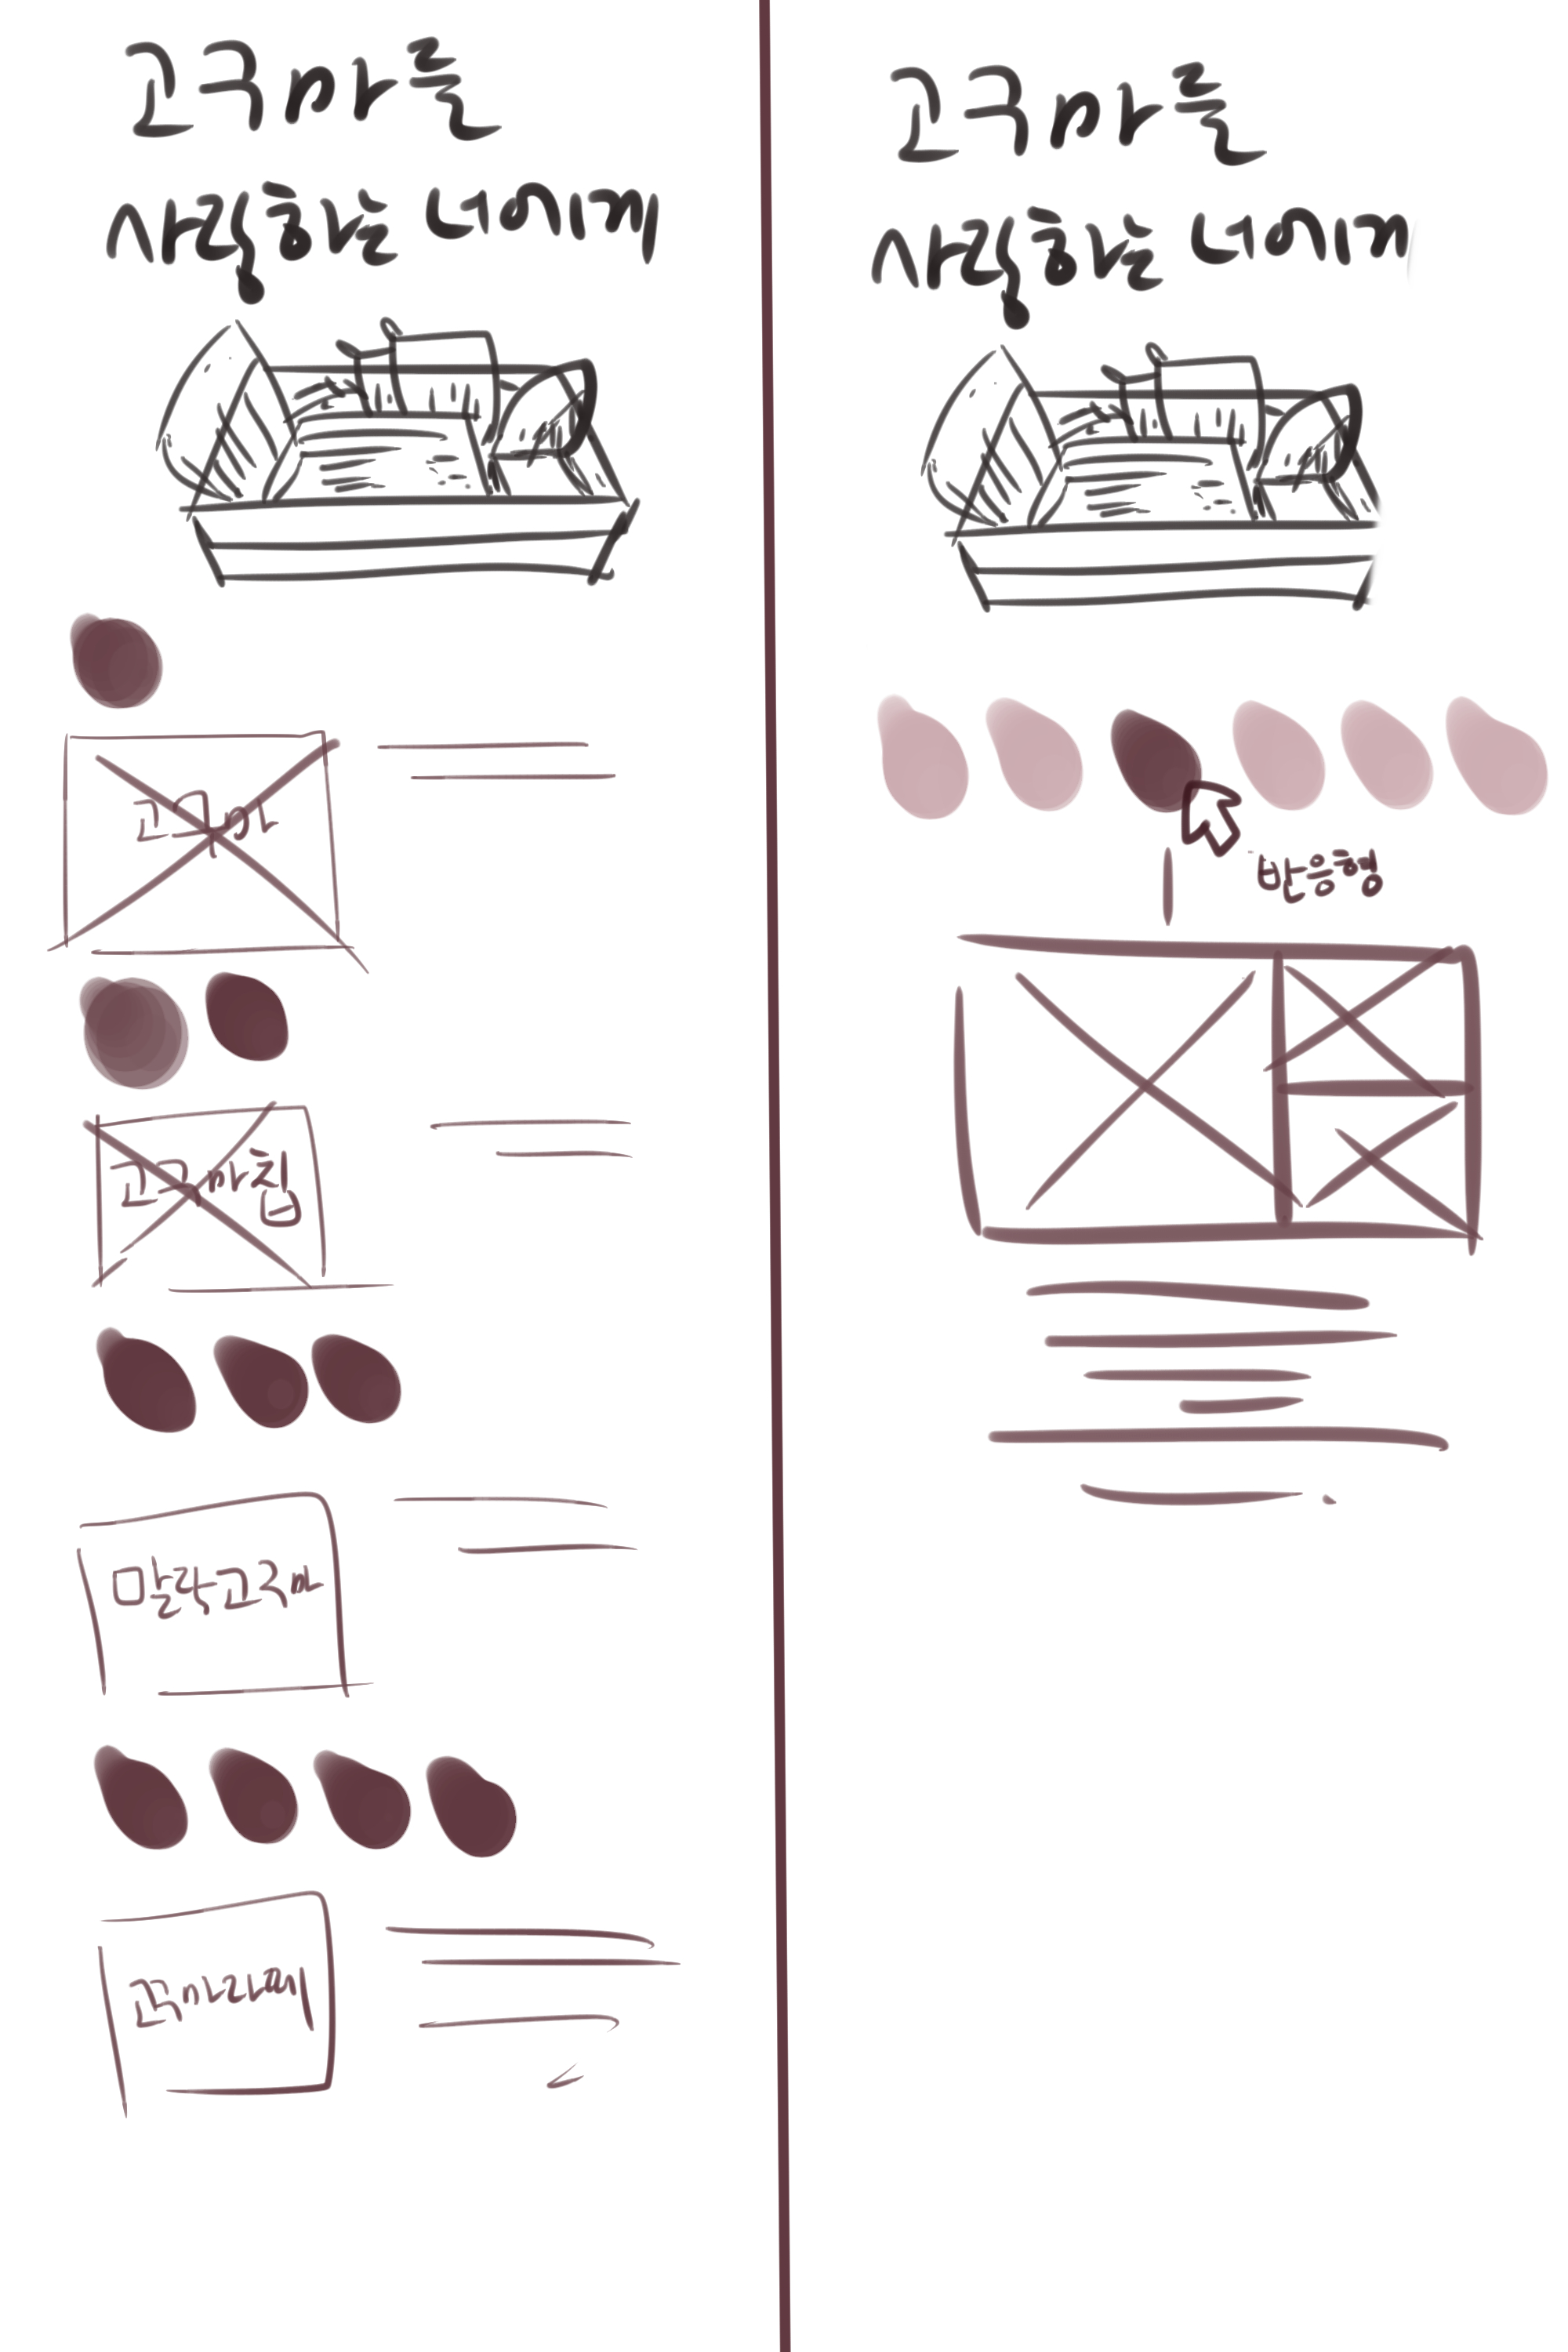 고구마를
사랑하는 너에게
고구마
고구마칩
말랑고구마
고구마라떼
고구마를
사랑하는 너에게
반응형